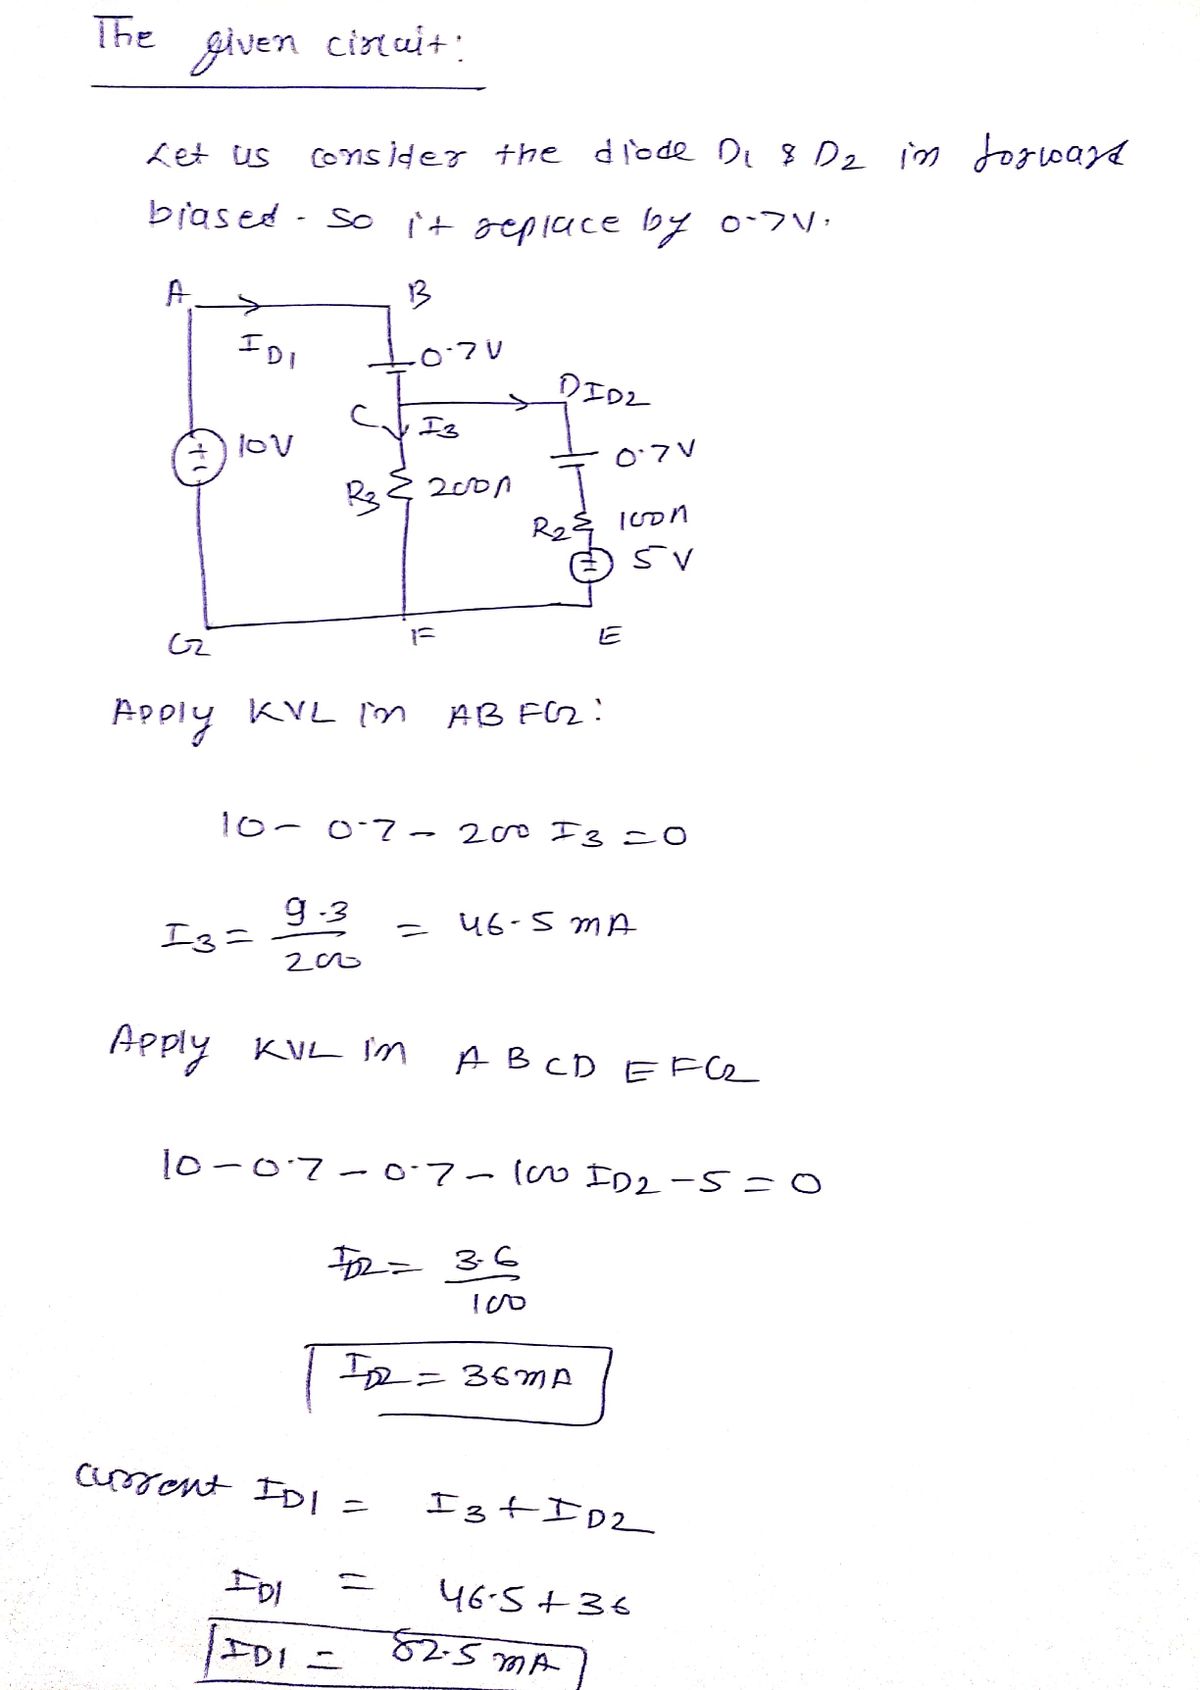 The given circuit:
Let us consider the diode D1 & D2 in forward
biased. So it replace by 0.7V.
A
B
ID1
0.7V
D ID2
C
I3
10V
0.7V
R3 200Ω
R2 100Ω
5V
G
F
E
Apply KVL in ABFG:
10 - 0.7 - 200 I3 = 0
I3 = 9.3/200 = 46.5 mA
Apply KVL in ABCDEFG
10 - 0.7 - 0.7 - 100 ID2 - 5 = 0
ID2 = 3.6/100
ID2 = 36mA
current ID1 = I3 + ID2
ID1 = 46.5 + 36
ID1 = 82.5 mA